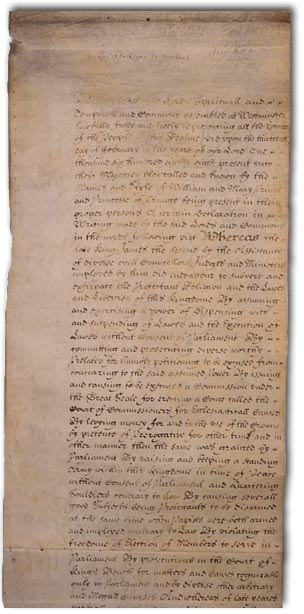 Whereas the Lords Spirituall and
Temporall and Comons assembled at Westminster
lawfully fully and freely representing all the Estates
of the People of this Realme did upon the
day of February in the yeare of our Lord One
thousand six hundred eighty eight present unto
their Majesties then called and known by the
Names and Stile of William and Mary Prince
and Princesse of Orange being present in their
proper persons A certain Declaration in
Writing made by the said Lords and Comons
in the words following viz Whereas the
late King James the second by the Assistance
of diverse evill Councellors Judges and Ministers
imployed by him did endeavour to subvert and
extirpate the Protestant Religion and the Lawes
and Liberties of this Kingdome By assuming
and exercising a power of Dispensing with
and suspending of Lawes and the Execution of
Lawes without Consent of Parliament By
comitting and prosecuting diverse worthy
Prelates for humbly petitioning to be excused from
concurring to the said assumed power By issueing
and causing to be executed a Comission under
the Great Seale for erecting a Court called the
Court of Commissioners for Ecclesiasticall Causes
By levying money for and to the use of the Crowne
by pretence of Prerogative for other time and in
other manner then the same was granted by
Parliament By raising and keeping a standing
Army within this Kingdome in time of Peace
without Consent of Parliament and Quartering
Souldiers contrary to Law By causing severall
good Subjects being Protestants to be disarmed
at the same time when Papists were both armed
and imployed contrary to Law By violating the
freedome of Election of Members to serve in
Parliament By prosecutions in the Court of
Kings Bench for matters and causes cognizable
only in Parliament and by diverse other arbitrary
and illegall Courses And whereas of late yeares